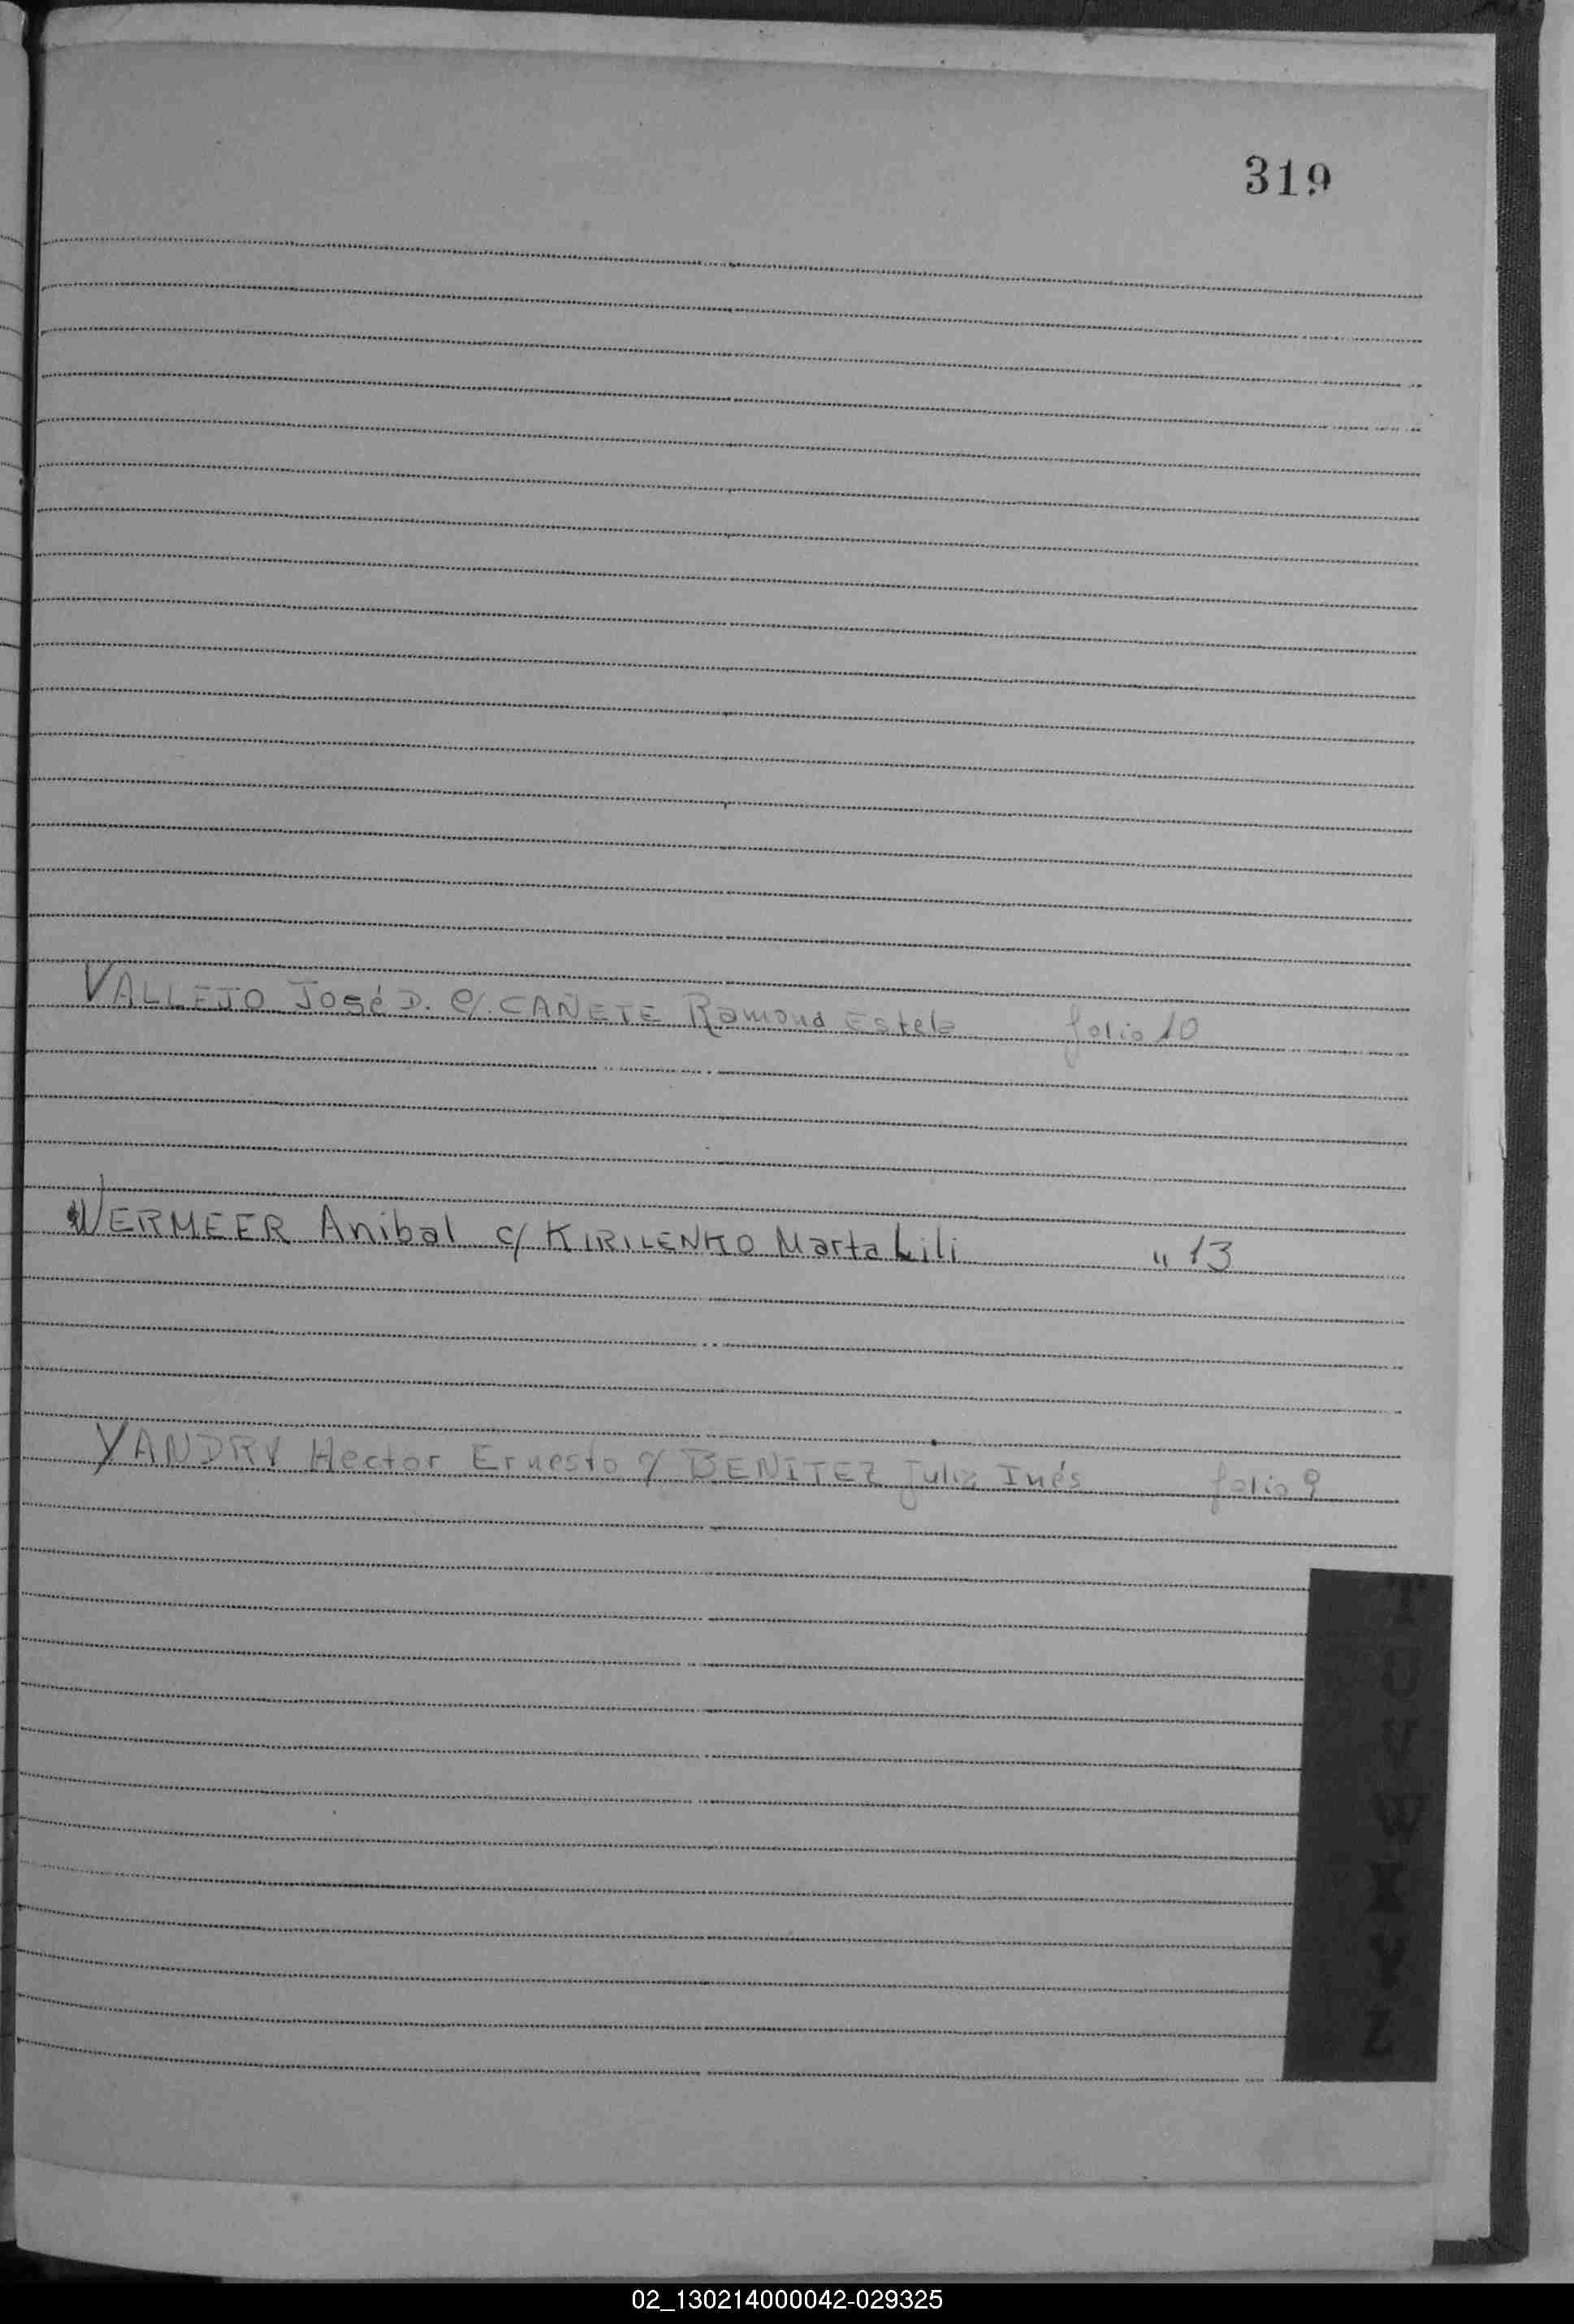 319
VALLEJO José D. c/. CAÑETE Ramona Estela folio 10
WERMEER Anibal c/ KIRILENKO Marta Lili " 13
YANDRY Hector Ernesto c/ BENITEZ Julia Inés folio 9
T
U
V
W
X
Y
Z
02_130214000042-029325